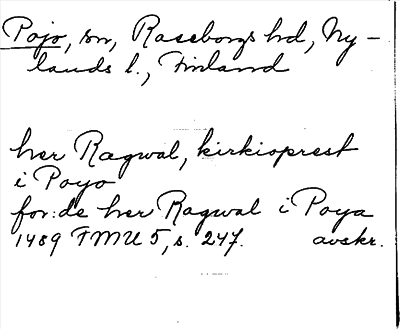 Pojo, sn, Raseborgs hd, Ny-
lands l., Finland
her Ragwal, kirkioprest
i Poyo
for:de her Ragwal i Poya
1489 FMU 5, s. 247. avskr.